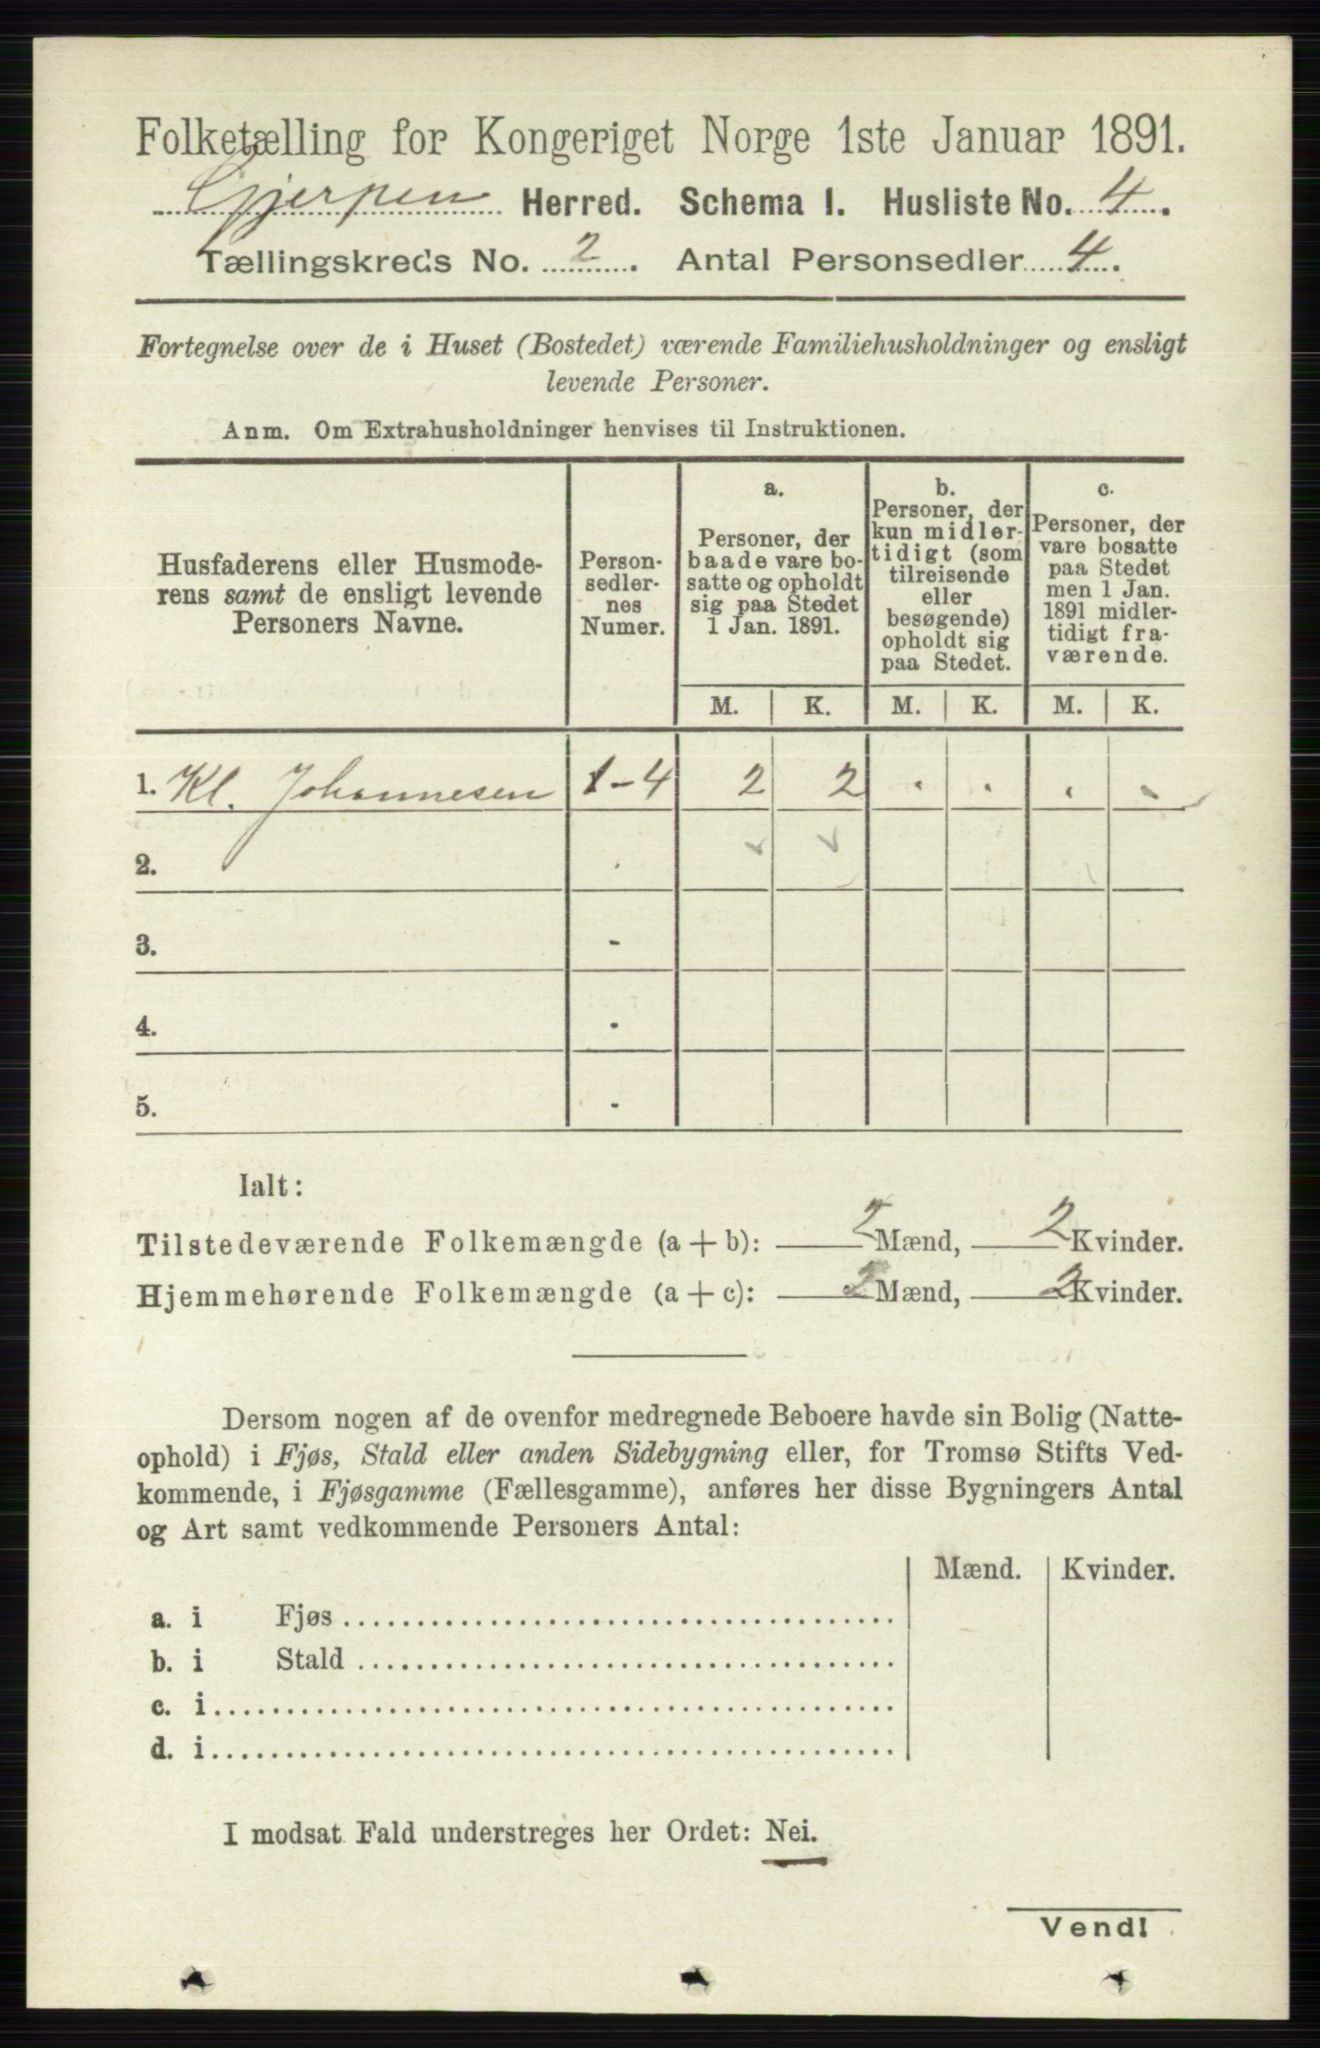 Folketælling for Kongeriget Norge 1ste Januar 1891.
Gjerpen Herred. Schema I. Husliste No. 4.
Tællingskreds No. 2. Antal Personsedler 4.
Fortegnelse over de i Huset (Bostedet) værende Familiehusholdninger og ensligt
levende Personer.
Anm. Om Extrahusholdninger henvises til Instruktionen.
Husfaderens eller Husmode-
rens samt de ensligt levende
Personers Navne.
Person-
sedler-
nes
Numer.
a.
Personer, der
baade vare bo-
satte og opholdt
sig paa Stedet
1 Jan. 1891.
b.
Personer, der
kun midler-
tidigt (som
tilreisende
eller
besøgende)
opholdt sig
paa Stedet.
c.
Personer, der
vare bosatte
paa Stedet
men 1 Jan.
1891 midler-
tidigt fra-
værende.
M. K. M. K. M. K.
1. Kl. Johannesen 1-4 2 2 . . . .
2.
3. -
4. -
5. -
Ialt:
Tilstedeværende Folkemængde (a + b): 2 Mænd, 2 Kvinder.
Hjemmehørende Folkemængde (a + c): 2 Mænd, 2 Kvinder.
Dersom nogen af de ovenfor medregnede Beboere havde sin Bolig (Natte-
ophold) i Fjøs, Stald eller anden Sidebygning eller, for Tromsø Stifts Ved-
kommende, i Fjøsgamme (Fællesgamme), anføres her disse Bygningers Antal
og Art samt vedkommende Personers Antal:
Mænd. Kvinder.
a. i Fjøs
b. i Stald
c. i
d. i
I modsat Fald understreges her Ordet: Nei.
Vend!